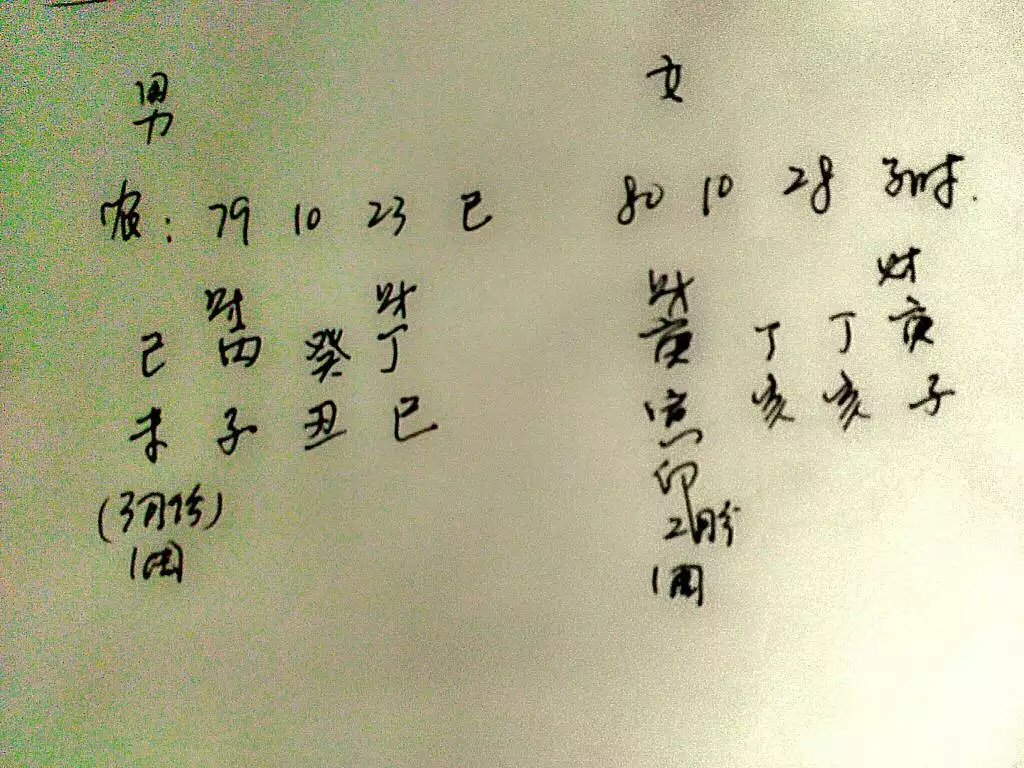 男
农: 79 10 23 巳
财 财
己 丙 癸 丁
未 子 丑 巳
(3月份)
1周
女
80 10 28 子时.
财 财
庚 丁 丁 庚
亥 亥 子
印
2月份
1周